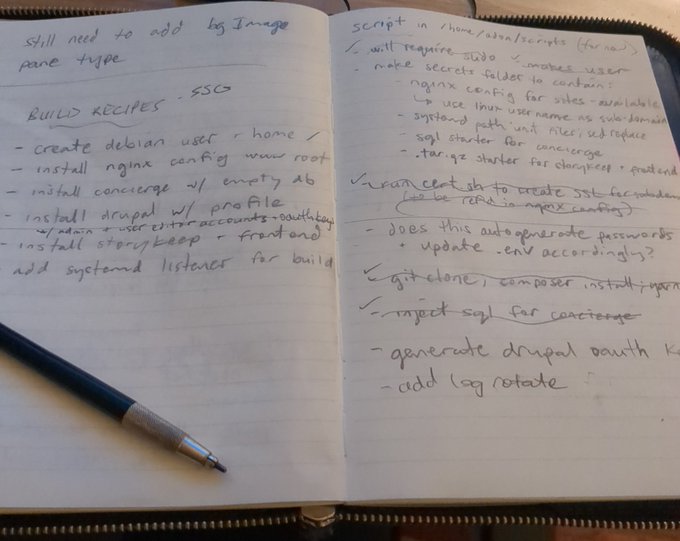 still need to add bg Image
pane type
BUILD RECIPES - SSG
- create debian user + home /
- install nginx config www root
- install concierge w/ empty db
- install drupal w/ profile
w/ admin + user editor accounts + oauth keys
- install storykeep + frontend
- add systemd listener for build
script in /home/adon/scripts (for now)
✓ - will require sudo ✓ makes user
- make secrets folder to contain:
- nginx config for sites-available
↳ use linux user name as sub-domain
- systemd path unit files; sed replace
- sql starter for concierge
- .tar.gz starter for storykeep + frontend
✓ - run cert sh to create SSL for
(to be ref'd in nginx config)
- does this autogenerate passwords
+ update .env accordingly?
✓ - git clone, composer install;
✓ - inject sql for concierge
- generate drupal oauth
- add log rotate